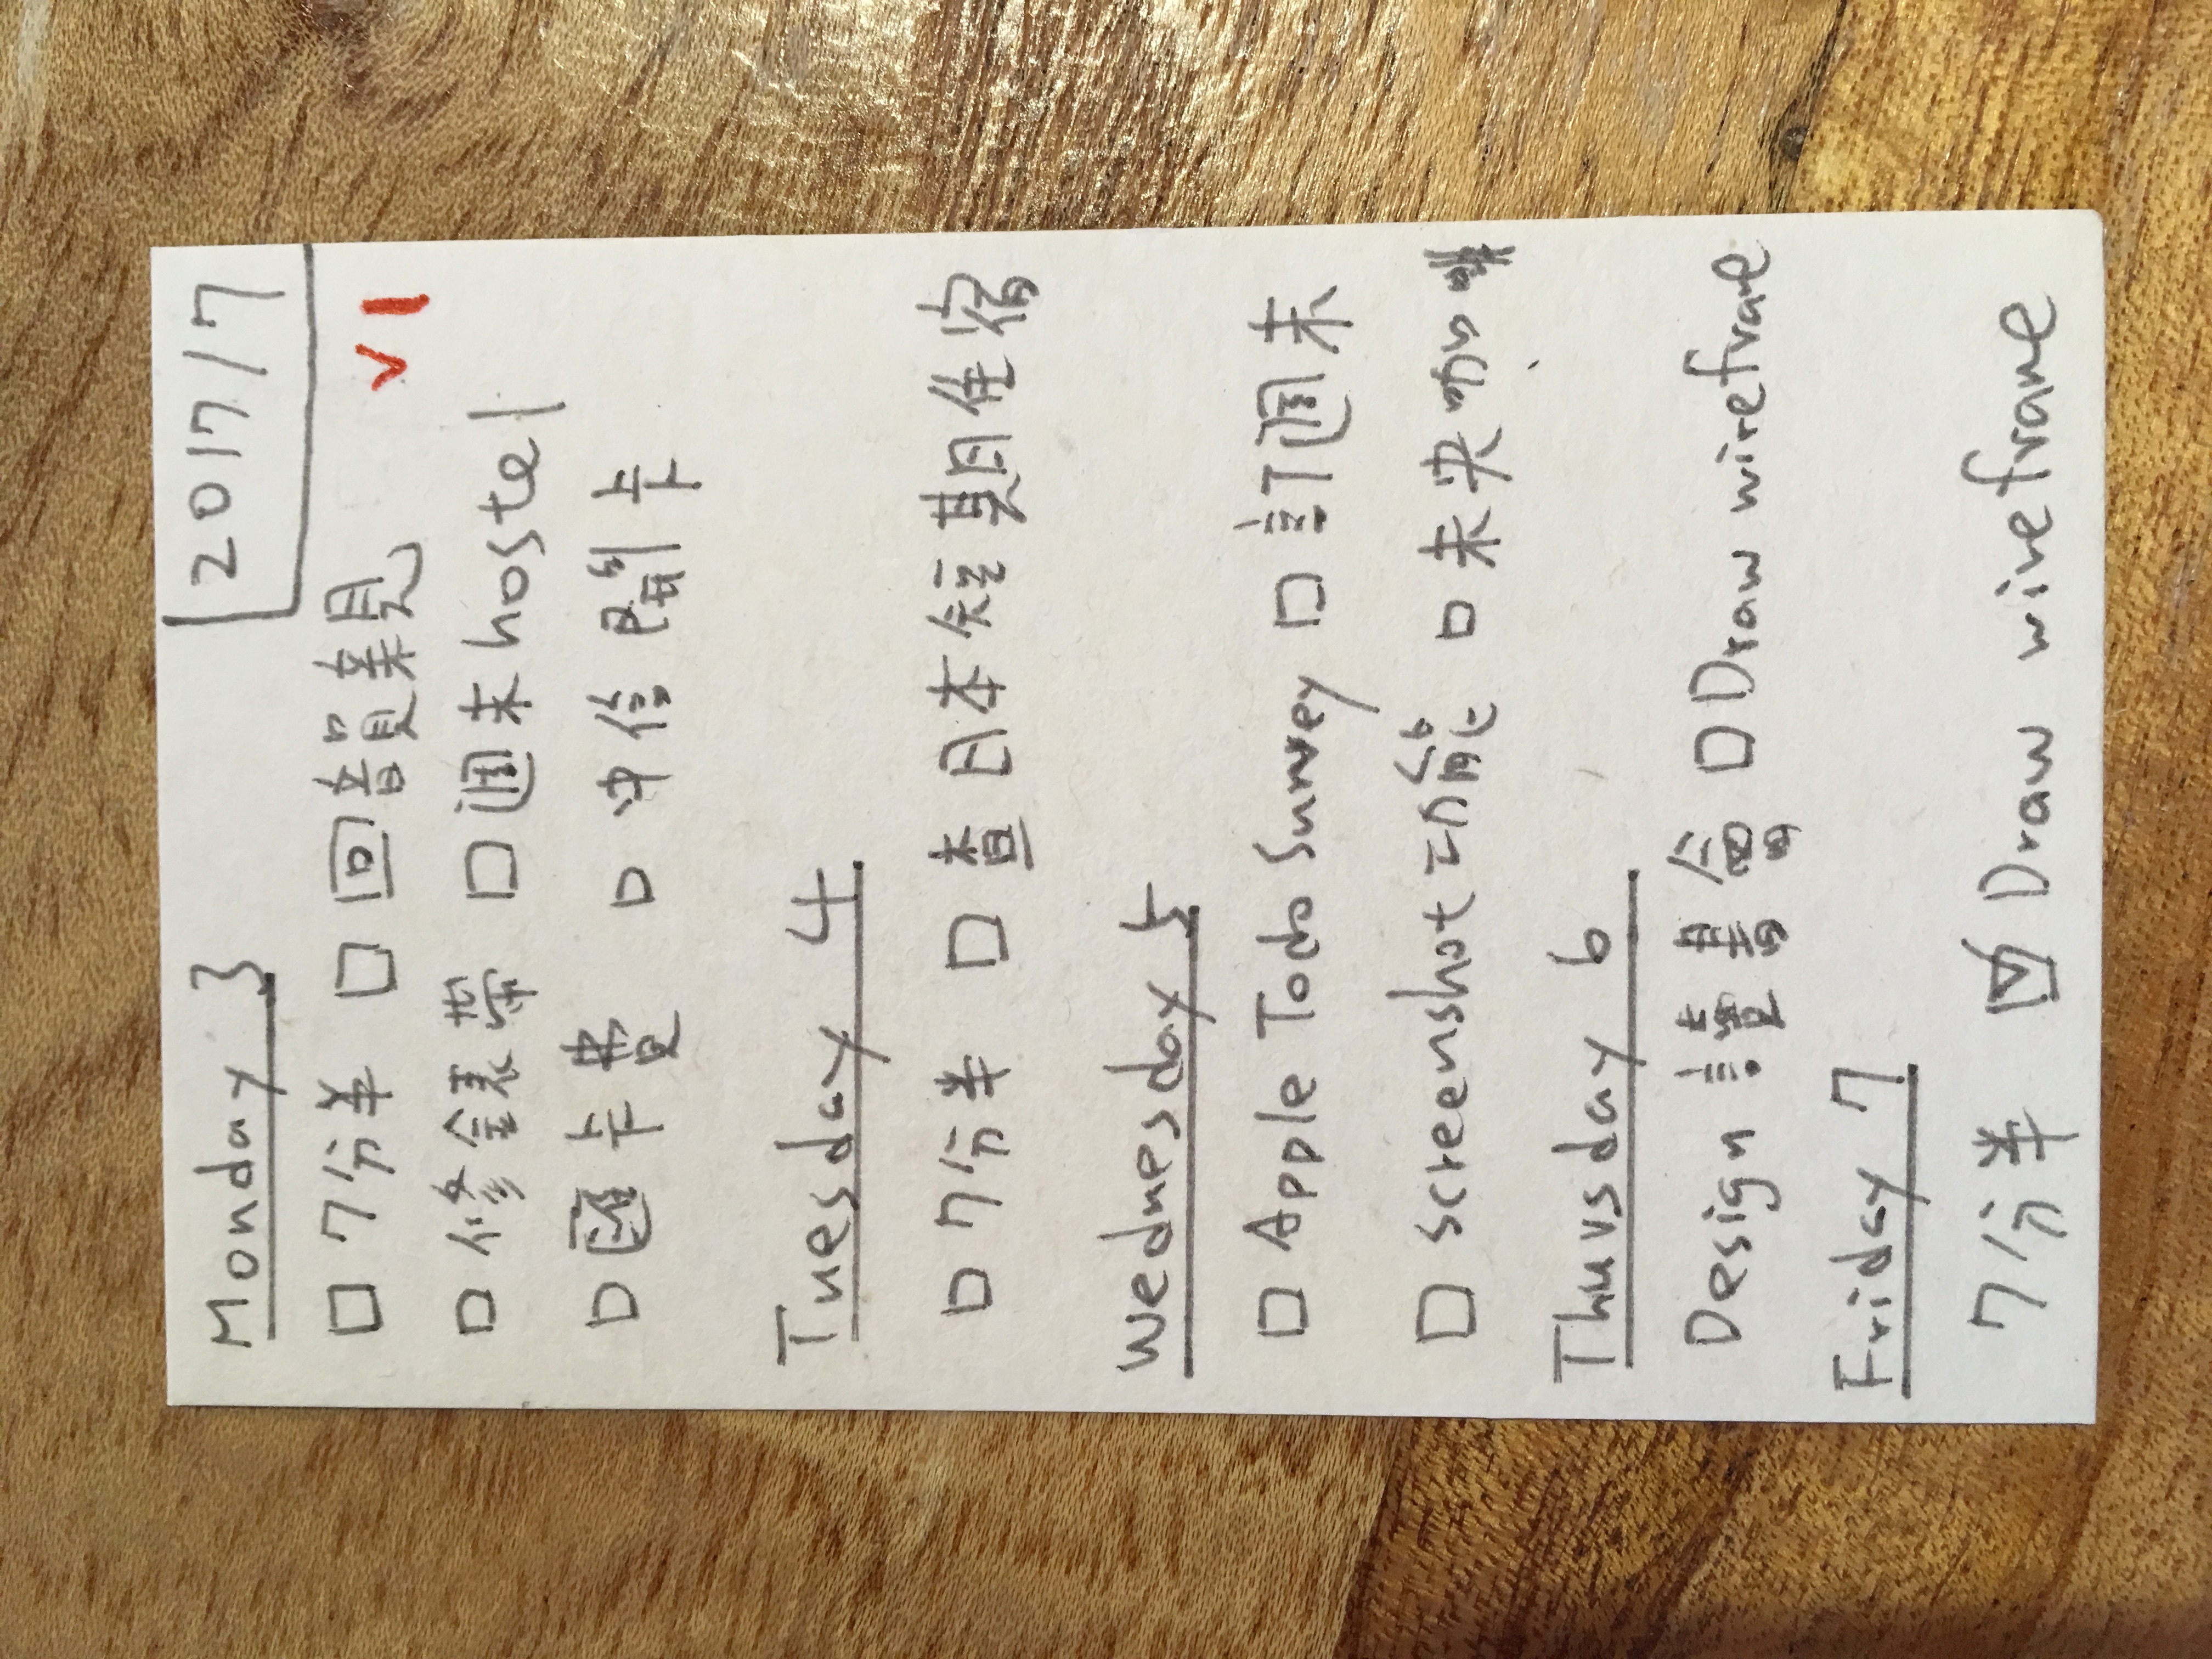 Monday 3 2017/7
□ 7分半 □ 回韻親 v1
□ 修錶帶 □ 週末hostel
□ 匯卡費 □ 中信開卡
Tuesday 4
□ 7分半 □ 查日本短期住宿
Wednesday 5
□ Apple Todo Survey □ 訂週末
□ screenshot功能 □ 未央咖啡
Thursday 6
Design 讀書會 □ Draw wireframe
Friday 7
7分半 ☑ Draw wireframe